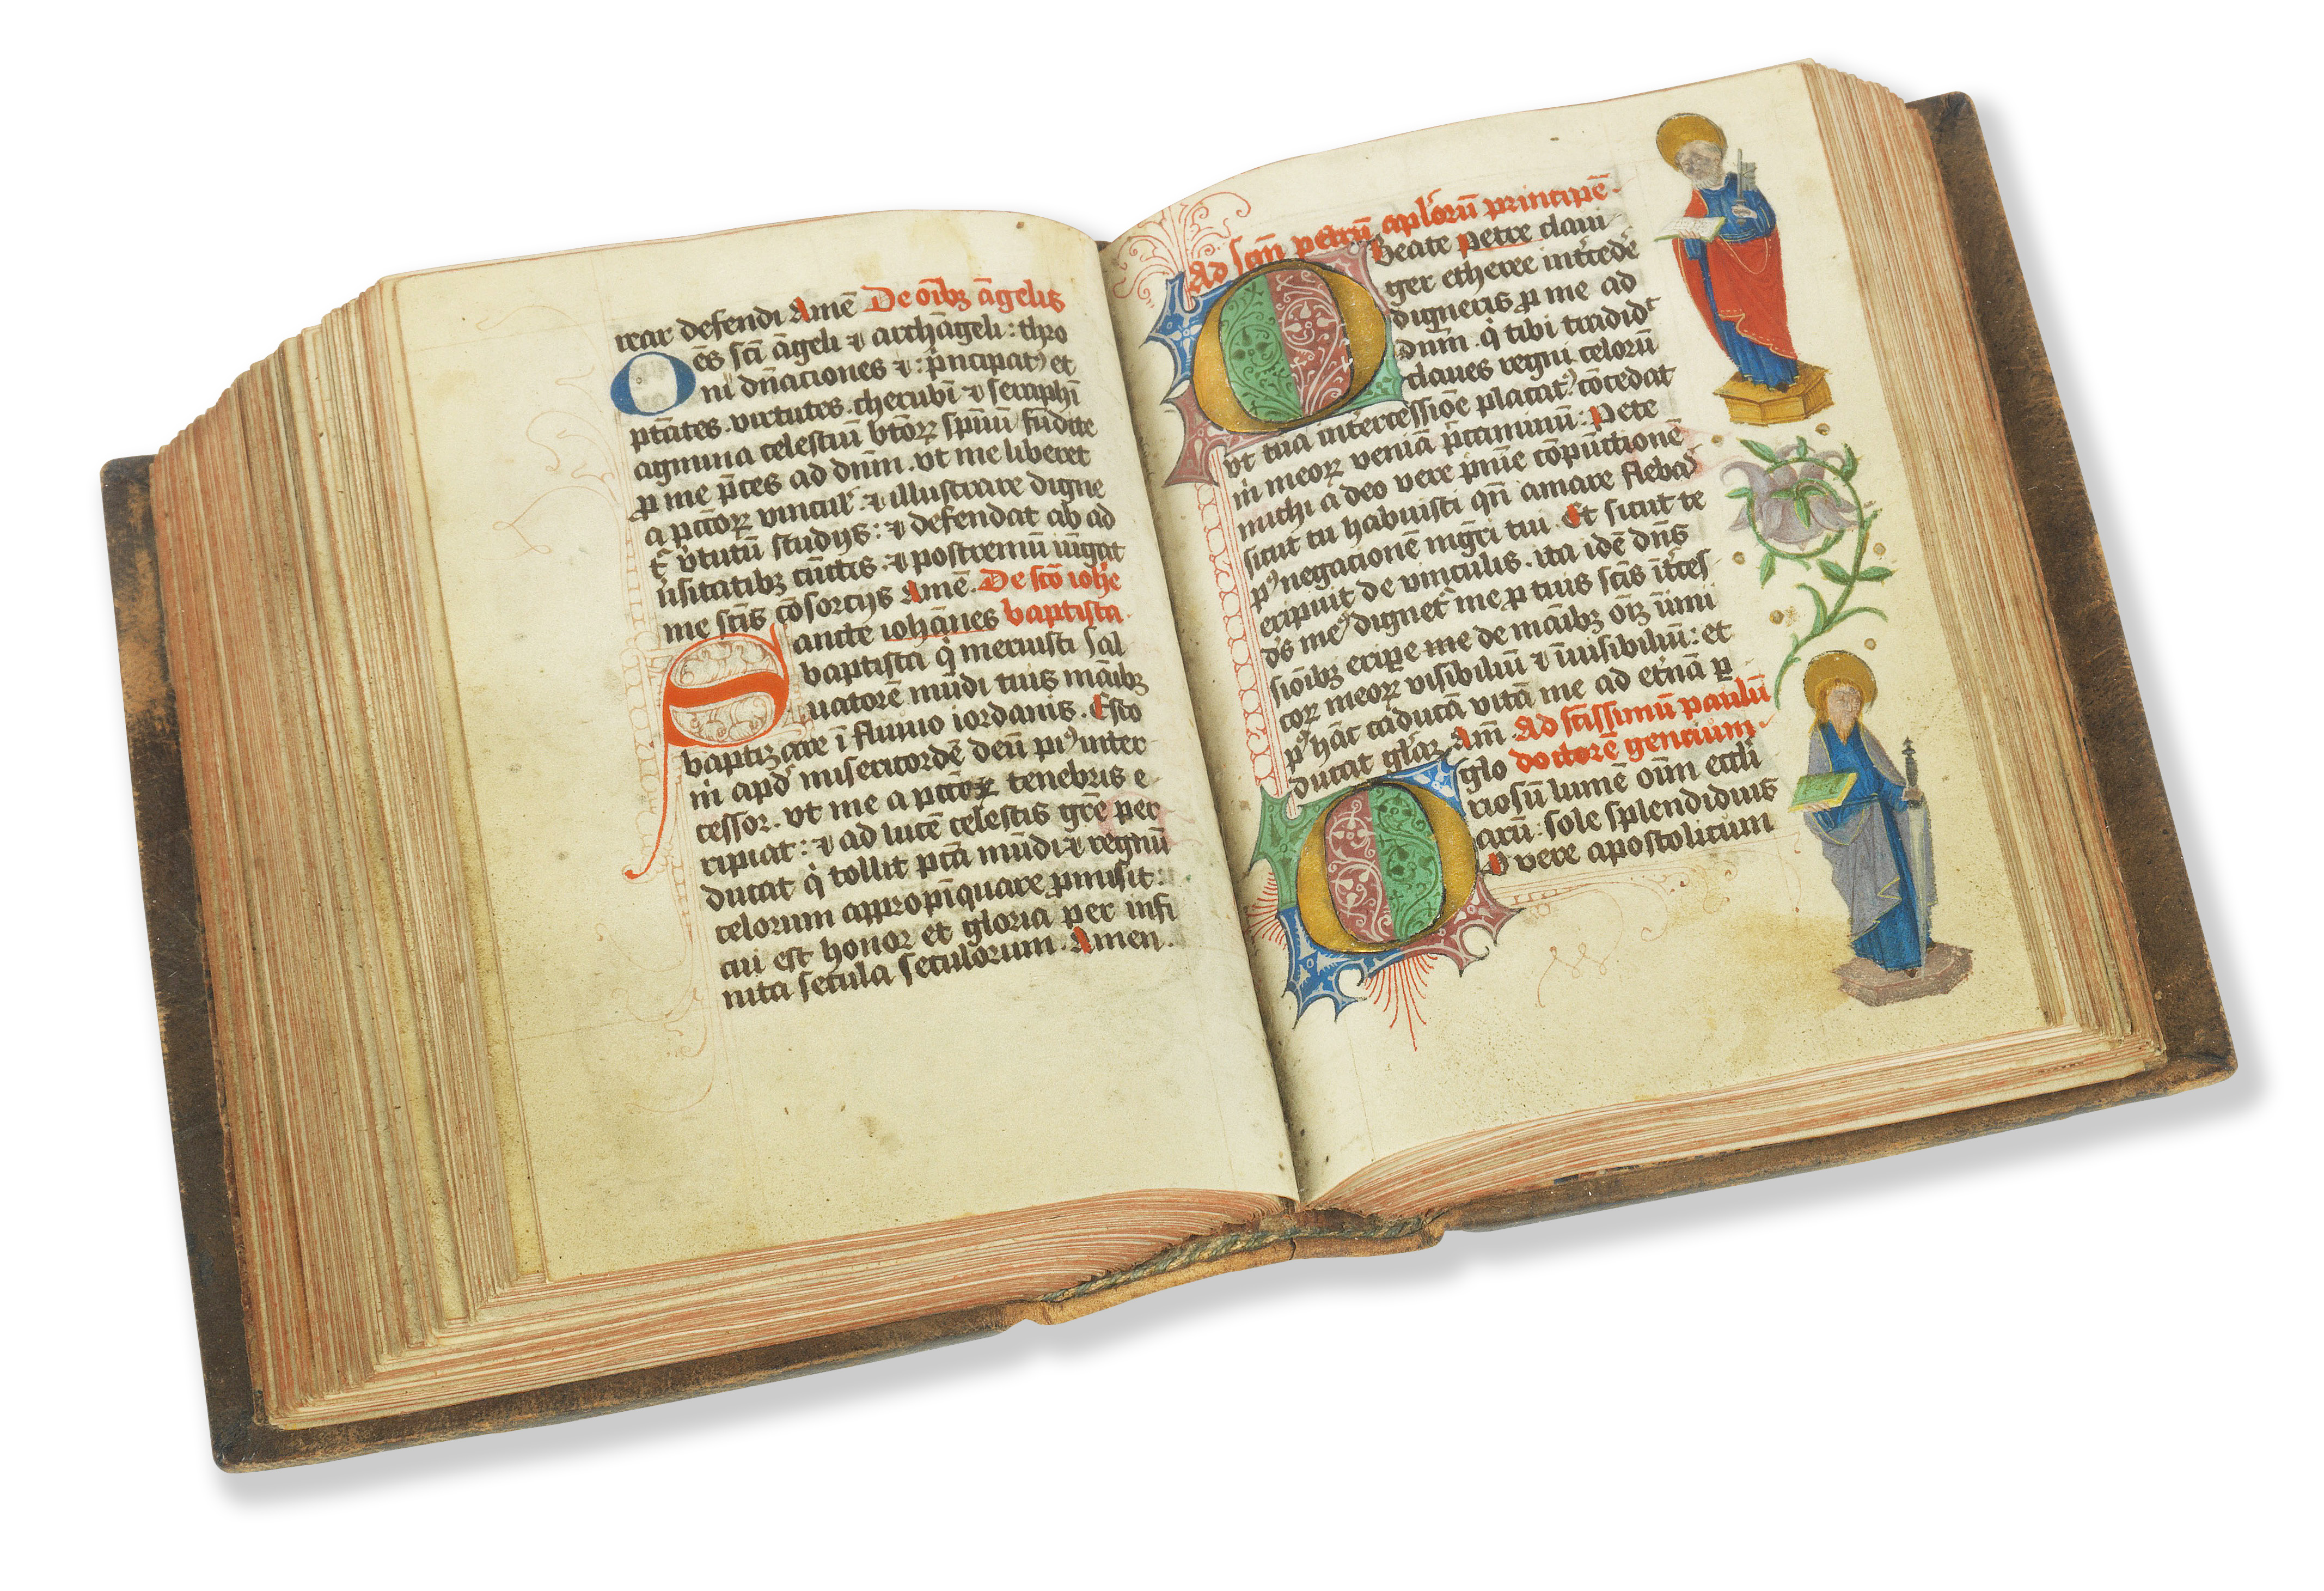 rear defendi Amē De oībꝫ āgelis
Oēs scī āgeli ⁊ archāgeli : thro
ni dn̄aciones ⁊ : p̄ncipatꝰ et
ptātes . virtutes . cherubī ⁊ seraphī
agmina celestiū btōꝝ spūū fūdite
ꝓ me p̄ces ad dn̄m . vt me liberet
a pctōꝝ vincul̄ . ⁊ illustrare digne
t᷑ v̓tutū studijs : ⁊ defendat ab ad
ūsitatibꝫ cūctis . ⁊ postremū iūgat
me scīs cōsorcijs Amē . De scō ioh̄e
Sancte iohānes baptista .
baptista q̇ meruisti sal
uatorē mūdi tuis māibꝫ
baptizare ī fluuio iordanis . Esto
m̄ apd̓ misericordē deū piꝰ inter
cessor . vt me a pctōꝝ tenebris e
ripiat : ⁊ ad lucē celestis grē per
ducat q̇ tollit pctā mūdi ⁊ regnū
celorum appropīquare ꝓmisit :
cui est honor et gloria per infi
nita secula seculorum . Amen .
Ad scm̄ petrū apl̓orū principē .
O Beate petre claui
ger etheree int̓cede̓
digneris ꝓ me ad
dn̄m . q̇ tibi tradidᵗ
claues regni celorū
vt tua int̓cessiōe placatꝰ cōcedat
m̄ meoꝝ veniā p̄ccaminū : Pete
michi a deo vere pn̄ie cōpūctionē
sicut tu habuisti qn̄ amare flebas
pꝰ negacionē mgr̄i tui . Et sicut te
eripuit de vinculis . ita idē dn̄s
ds̄ meꝰ dignet᷑ me ꝑ tuis scīs īt̓ces
sioībꝫ eripe me de māibꝫ oīꝫ inimi
coꝝ meoꝝ visibiliū ⁊ īuisibiliū : et
pꝰ hāc caducā vitā me ad et̓nā ꝑ
ducat gl̓iaꝫ Am̄ . Ad scīssimū paulū
O glo doctorē gencium .
riosū lumē oīm eccl̓i
arū : sole splendidius
⁊ vere apostolicum